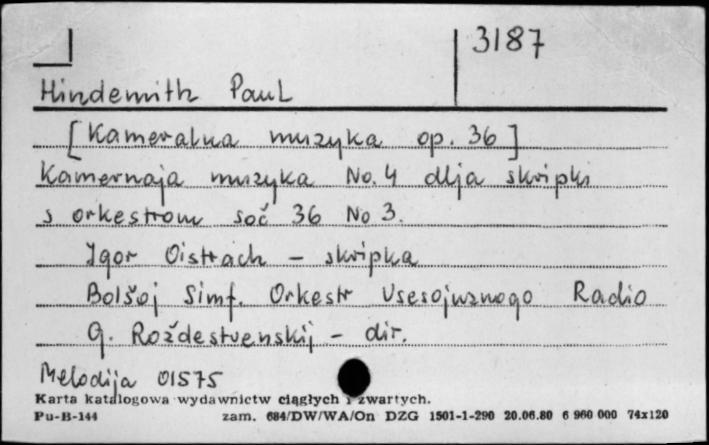 3187
Hindemith Paul
[Kameralna muzyka op. 36]
Kamernaja muzyka No. 4 dlja skripki
s orkestrom soč 36 No 3.
Igor Oistrach – skripka
Bolšoj Simf. Orkestr Vsesojuznogo Radio
G. Roždestvenskij – dir.
Melodija 01575
Karta katalogowa wydawnictw ciągłych i zwartych.
Pu-B-144 zam. 684/DW/WA/On DZG 1501-1-290 20.06.80 6 960 000 74x120